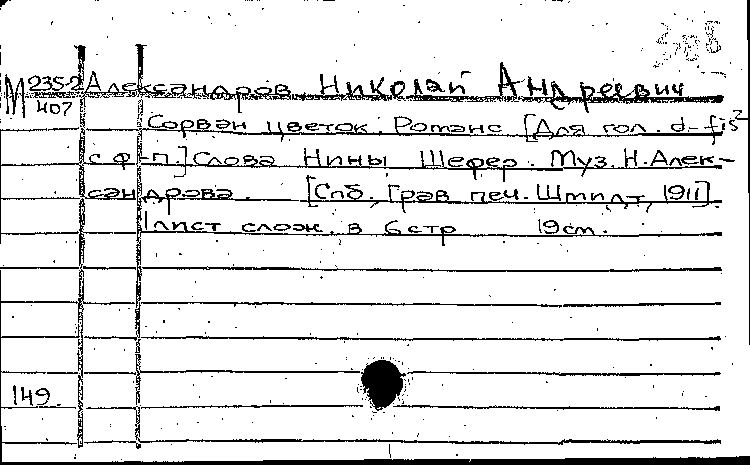 М 235-2 Александров, Николай Андреевич
407
Сорван цветок. Романс [Для гол. d-fis²
с ф-п.] Слова Нины Шефер. Муз. Н. Алек-
сандрова. [Спб., Грав. печ. Штилт, 1911].
1 лист слож. в 6 стр 19 см.
149.